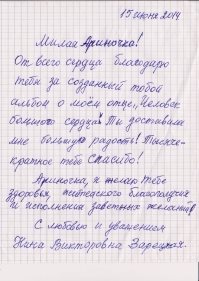 15 июня 2014
Милая Ариночка!
От всего сердца благодарю
тебя за созданный тобой
альбом о моем отце, „Человек
большого сердца". Ты доставила
мне большую радость! Тысяче-
кратное тебе спасибо!
Ариночка, я желаю тебе
здоровья, житейского благополучия
и исполнения заветных желаний!
С любовью и уважением
Нина Викторовна Зарецкая.